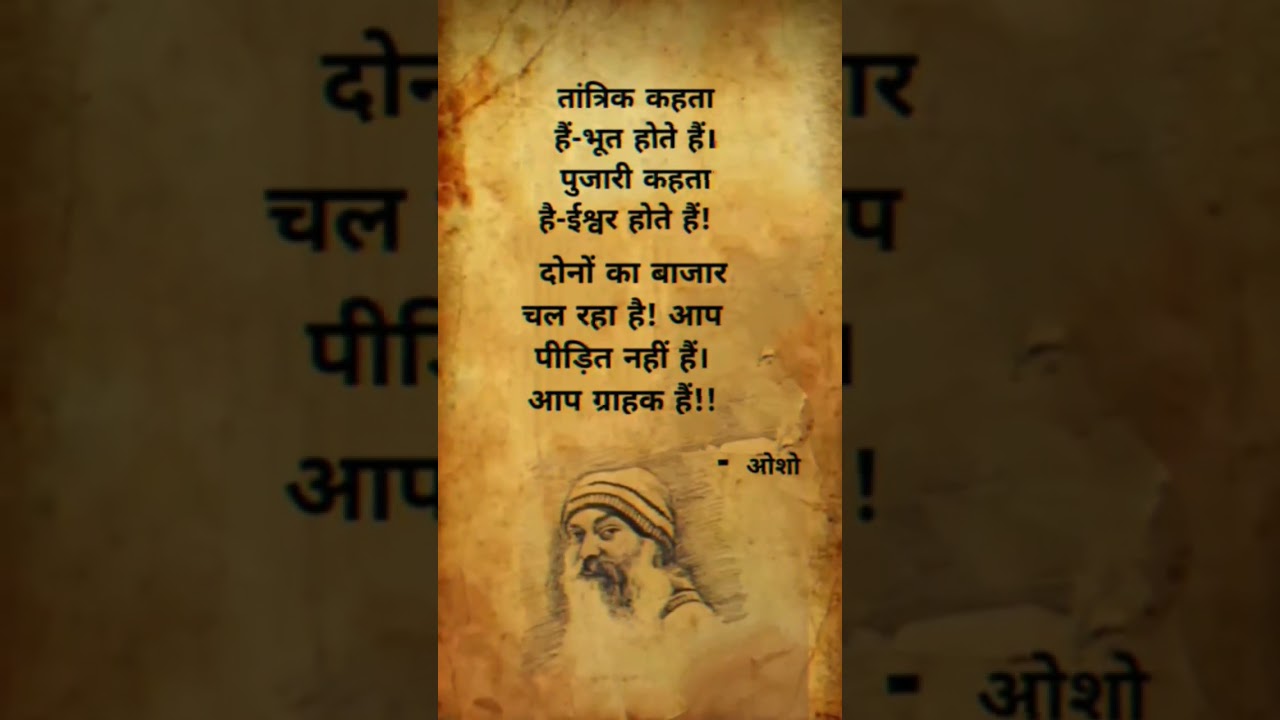 तांत्रिक कहता
हैं-भूत होते हैं।
पुजारी कहता
है-ईश्वर होते हैं!
दोनों का बाजार
चल रहा है! आप
पीड़ित नहीं हैं।
आप ग्राहक हैं!!
- ओशो